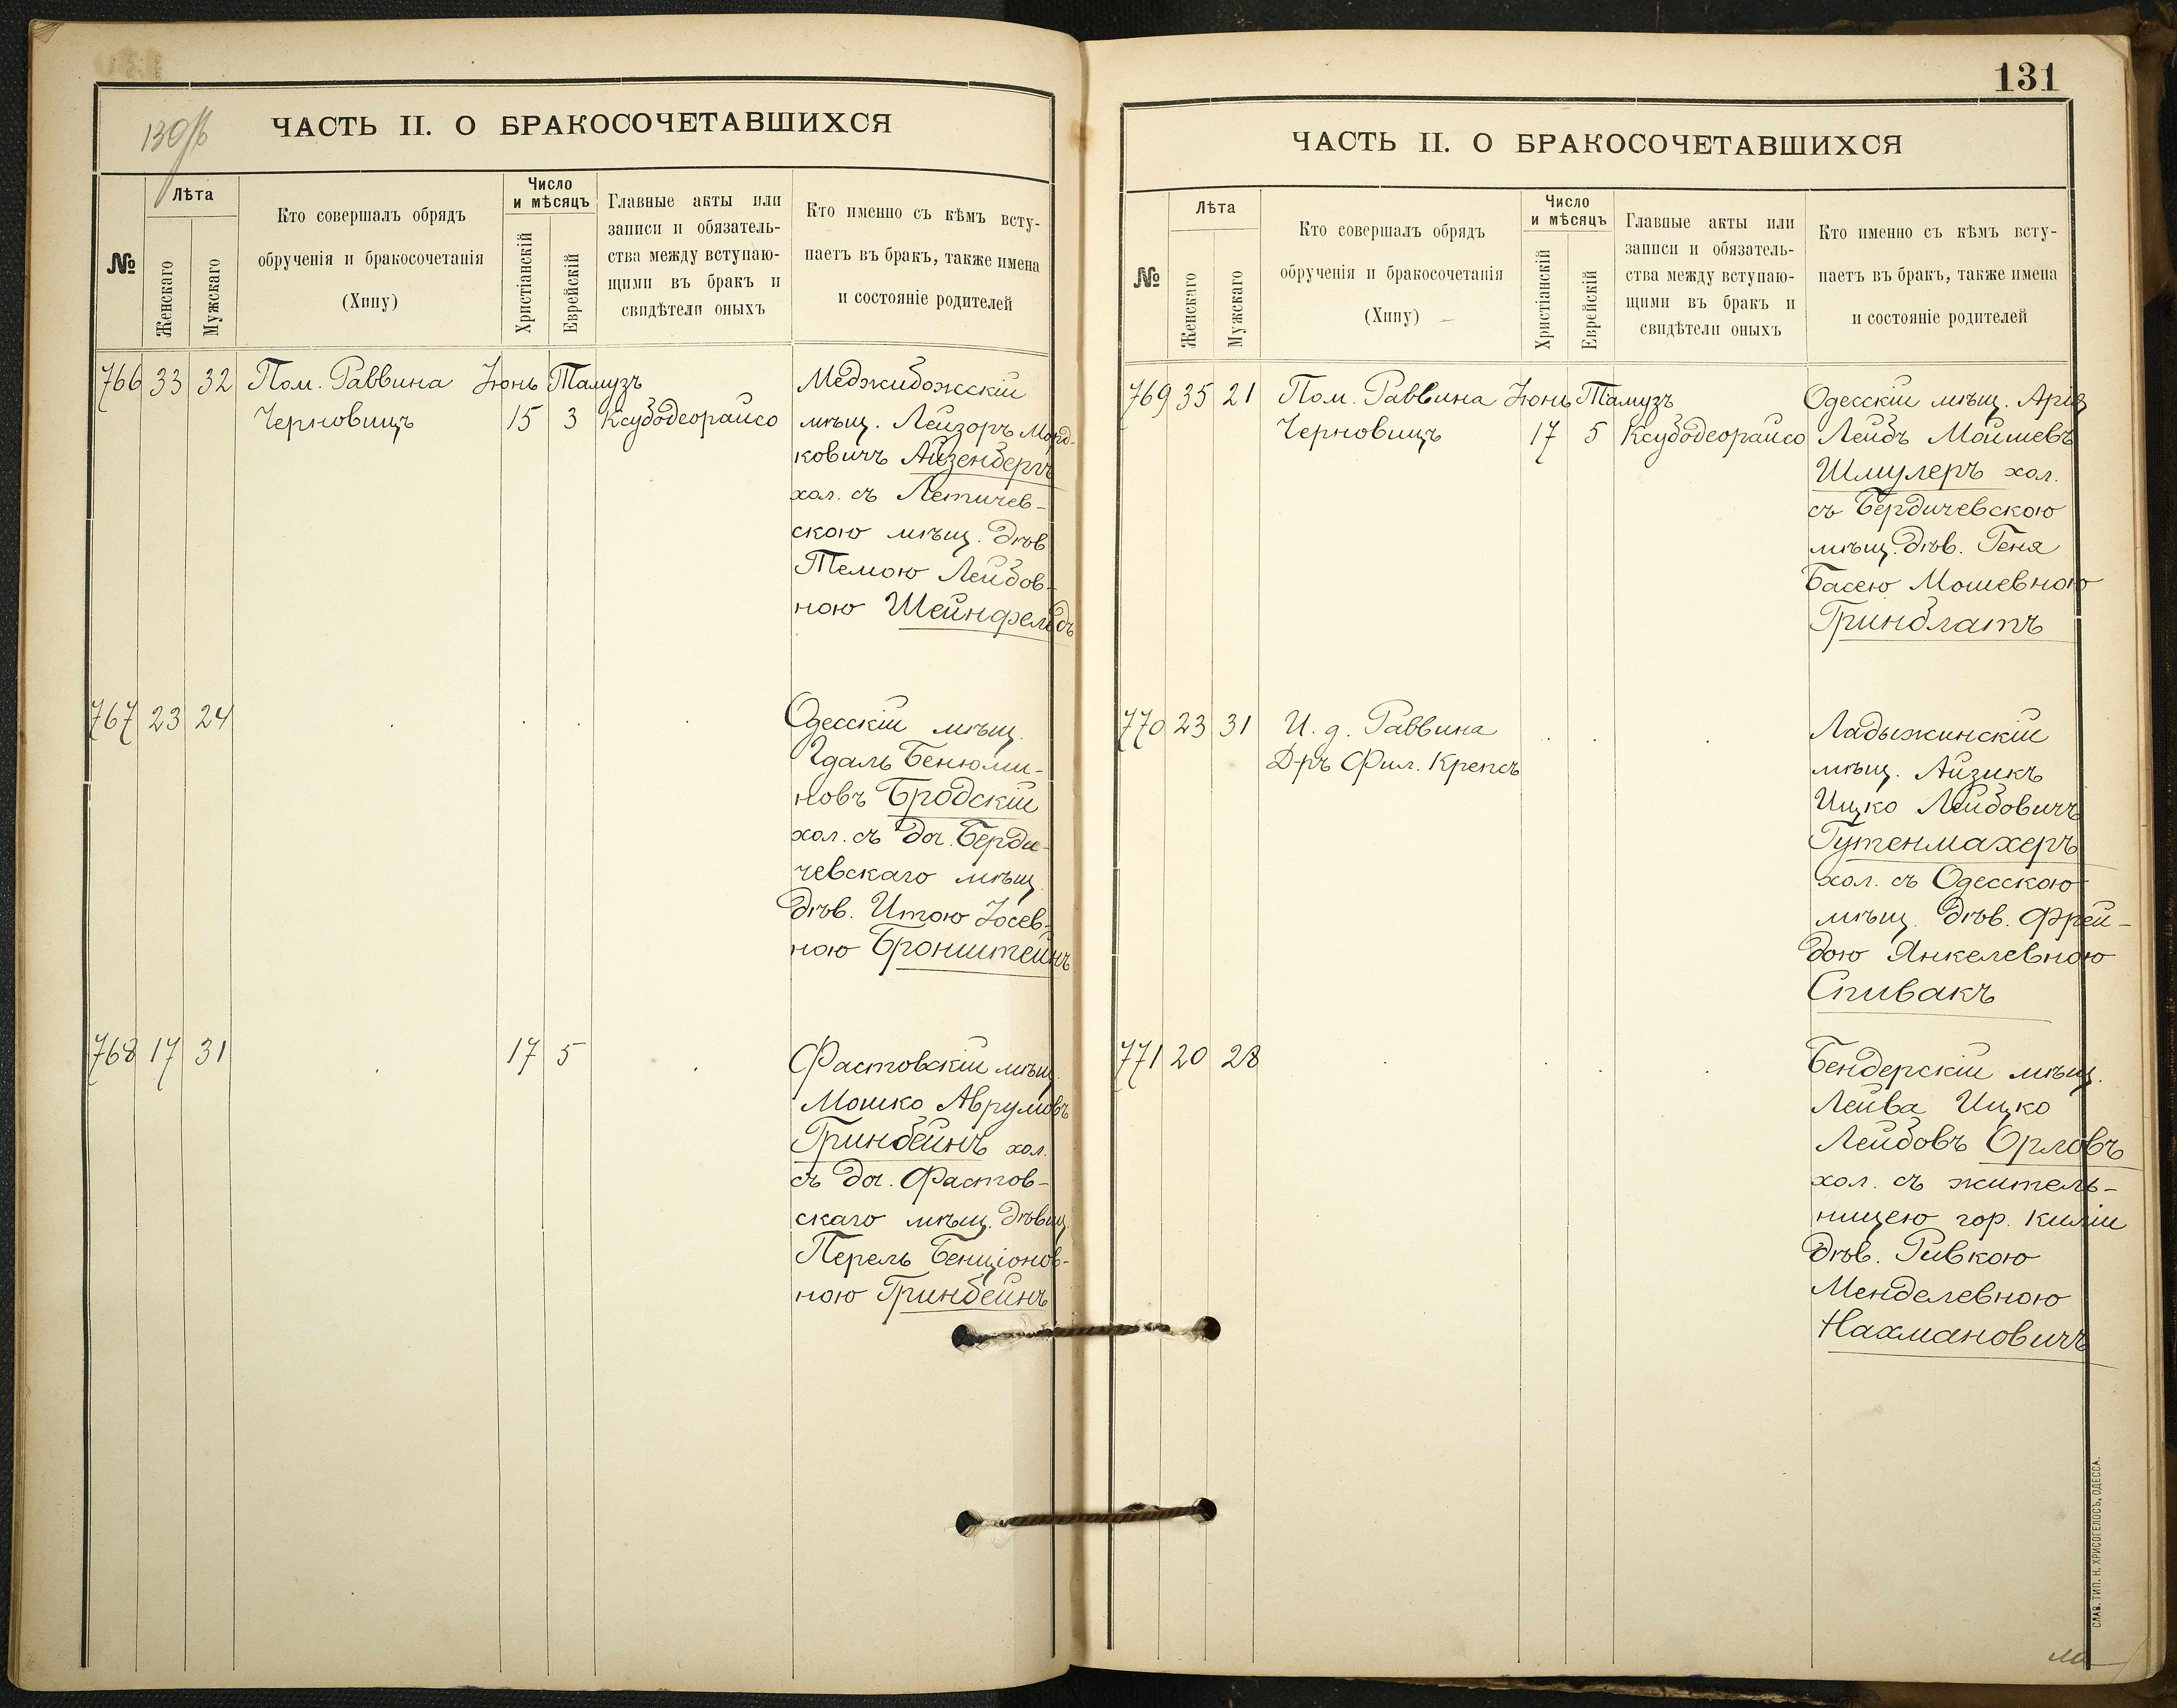 130
ЧАСТЬ II. О БРАКОСОЧЕТАВШИХСЯ
№
Лѣта
Женскаго
Мужскаго
Кто совершалъ обрядъ
обрученія и бракосочетанія
(Хипу)
Число
и мѣсяцъ
Христіанскій
Еврейскій
Главные акты или
записи и обязатель-
ства между вступаю-
щими въ бракъ и
свидѣтели оныхъ
Кто именно съ кѣмъ всту-
паетъ въ бракъ, также имена
и состояніе родителей
766 33 32 Пом. Раввина Іюнь Тамузъ
Черновицъ 15 3 Ксубодеорайсо
Меджибожскій
мѣщ. Лейзоръ Морд-
ковичъ Айзенбергъ
хол. съ Летичев-
скою мѣщ. дѣв
Темою Лейбов-
ною Шейнфельдъ
767 23 24
Одесскій мѣщ.
Гдаль Бенюми-
новъ Бродскій
хол. съ доч. Берди-
чевскаго мѣщ.
дѣв. Итою Іосев-
ною Бронштейнъ
768 17 31 17 5
Фастовскій мѣщ.
Мошко Аврумовъ
Гринбейнъ хол.
съ доч. Фастов-
скаго мѣщ. дѣвиц
Перель Бенціонов-
ною Гринбейнъ
131
ЧАСТЬ II. О БРАКОСОЧЕТАВШИХСЯ
№
Лѣта
Женскаго
Мужскаго
Кто совершалъ обрядъ
обрученія и бракосочетанія
(Хипу)
Число
и мѣсяцъ
Христіанскій
Еврейскій
Главные акты или
записи и обязатель-
ства между вступаю-
щими въ бракъ и
свидѣтели оныхъ
Кто именно съ кѣмъ всту-
паетъ въ бракъ, также имена
и состояніе родителей
769 35 21 Пом. Раввина Іюнь Тамузъ
Черновицъ 17 5 Ксубодеорайсо
Одесскій мѣщ. Арія
Лейбъ Мойшевъ
Шмулеръ хол.
съ Бердичевскою
мѣщ. дѣв. Геня
Басею Мошевною
Гринблатъ
770 23 31 И. д. Раввина
Д-ръ Фил. Крепсъ
Ладыжинскій
мѣщ. Айзикъ
Ицко Лейбовичъ
Гутенмахеръ
хол. съ Одесскою
мѣщ. дѣв. Фрей-
дою Янкелевною
Спивакъ
771 20 28
Бендерскій мѣщ.
Лейва Ицко
Лейбовъ Орловъ
хол. съ житель-
ницею гор. Киліи
дѣв. Ривкою
Менделевною
Нахмановичъ
СЛАВ. ТИП. Н. ХРИСОГЕЛОСЪ, ОДЕССА.